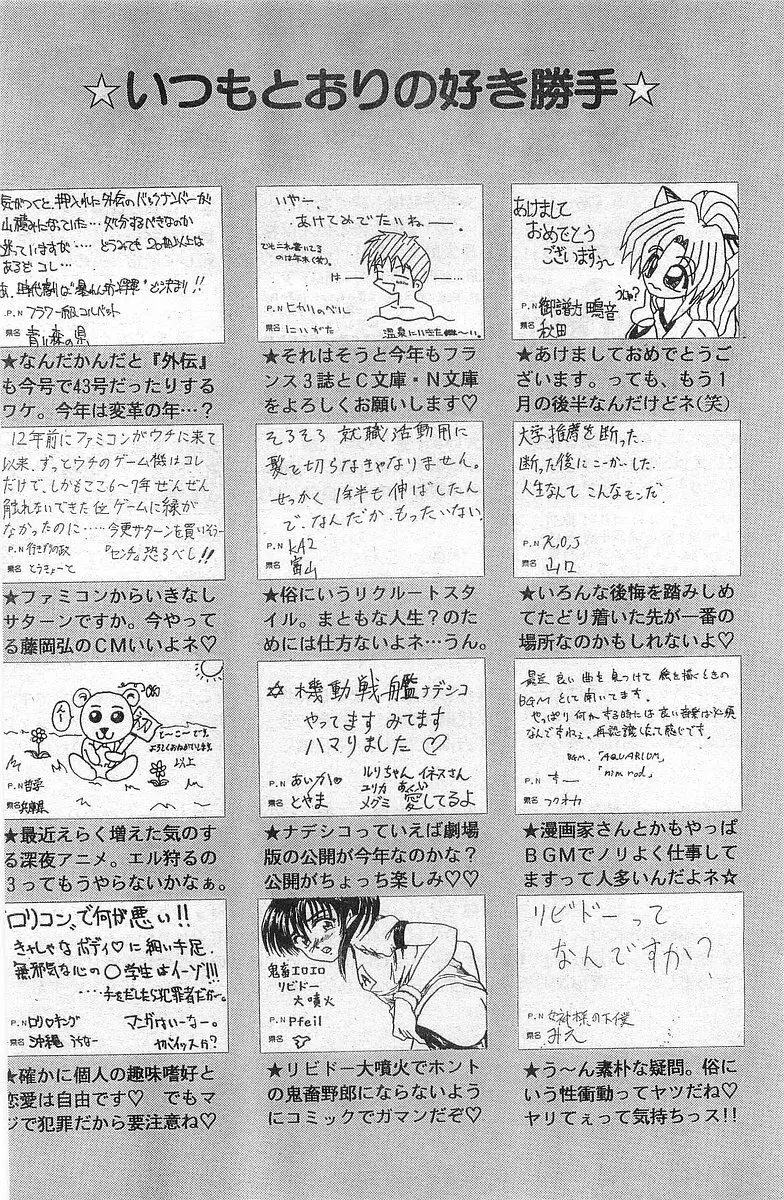 ☆いつもとおりの好き勝手☆
あけまして
おめでとう
ございますっ〜
うにゅ?
P.N 御諸方 鴨音
県名 秋田
★あけましておめでとうご
ざいます。っても、もう1
月の後半なんだけどネ(笑)
いやー、
あけてめでたいねー。
でもこれ書いてる
のは年末(笑)。
は——…
P.N ヒカリのベル
県名 にいがた
温泉にいきたひ〜い。
★それはそうと今年もフラ
ンス3誌とC文庫・N文庫
をよろしくお願いします♡
気がつくと、押入れに外伝のバックナンバーが
山積みになっていた…処分するべきなのか
迷っていますが…‥ どうみても20冊以上は
あるぞ コレ…
P.N フラワー級コルベット
県名 青い森の県
★なんだかんだと『外伝』
も今号で43号だったりする
ワケ。今年は変革の年…?
大学推薦を断った。
断った後にこーかいした。
人生なんて こんなモンだ。
P.N K,O,J
県名 山口
★いろんな後悔を踏みしめ
てたどり着いた先が一番の
場所なのかもしれないよ♡
そろそろ 就職活動用に
髪を切らなきゃなりません。
せっかく 1年半も伸ばしたん
で、なんだか、もったいない。
P.N KAZ
県名 富山
★俗にいうリクルートスタ
イル。まともな人生?のた
めには仕方ないよネ…うん。
12年前にファミコンがウチに来て
以来、ずっとウチのゲーム機はコレ
だけで、しかもここ6〜7年ぜんぜん
触れないできた位ゲームに縁が
なかったのに……今更サターンを買いそう
P.N 行きずりの政
『センチ』恐るべし!!
県名 とうきょーと
★ファミコンからいきなし
サターンですか。今やって
る藤岡弘のCMいいよネ♡
最近 良い曲を見つけて 絵を描くときの
BGM として聞いてます。
やっぱり 何か する時には 良い音楽は必須
なんですねぇ。再認識したって感じです。
BGM.「AQUARIUM」
「nim rod」
P.N ちー
県名 フクオカ
★漫画家さんとかもやっぱ
BGMでノリよく仕事して
ますって人多いんだよネ☆
☆ 機動戦艦ナデシコ
やってます みてます
ハマりました ♡
P.N あいか
ルリちゃん イネスさん
県名 とやま
ユリカ
メグミ 愛してるよ
★ナデシコっていえば劇場
版の公開が今年なのかな?
公開がちょっち楽しみ♡♡
初
よろしくおねがいします。
以上
P.N 哲学
県名 兵庫県
★最近えらく増えた気のす
る深夜アニメ。エル狩るの
3ってもうやらないかなぁ。
リビドーって
なんですか?
P.N 女神様の下僕
県名 みえ
★う〜ん素朴な疑問。俗に
いう性衝動ってヤツだね♡
ヤリてぇって気持ちっス!!
鬼畜エロエロ
リビドー
大噴火
P.N Pfeil
県名
★リビドー大噴火でホント
の鬼畜野郎にならないよう
にコミックでガマンだぞ♡
"ロリコン"で何が悪い!!
きゃしゃな ボディ♡に 細い手足、
無邪気な心の 〇学生はイーゾ!!!
‥‥手をだしたら犯罪者だがー。
P.N ロリ♡キング
マンガはいーなー。
県名 沖縄 うちなー
ヤバイッスカ?
★確かに個人の趣味嗜好と
恋愛は自由です♡ でもマ
ジで犯罪だから要注意ね♡